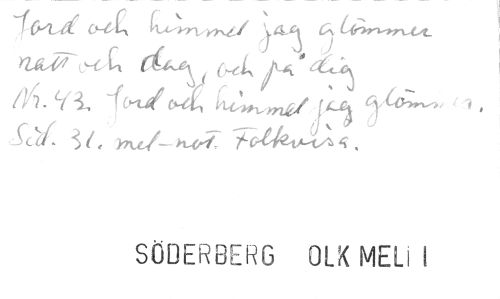 Jord och himmel jag glömmer
natt och dag, och på dig
Nr. 43. Jord och himmel jag glömmer.
Sid. 31. mel-not. Folkvisa.
SÖDERBERG OLK MELI I